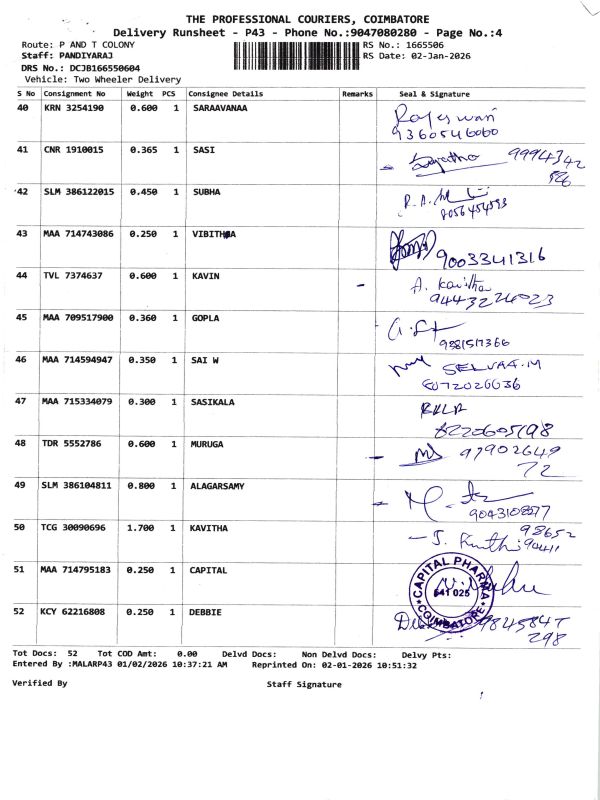 THE PROFESSIONAL COURIERS, COIMBATORE
Delivery Runsheet - P43 - Phone No.:9047080280 - Page No.:4
Route: P AND T COLONY
RS No.: 1665506
Staff: PANDIYARAJ
RS Date: 02-Jan-2026
DRS No.: DCJB166550604
Vehicle: Two Wheeler Delivery
S No Consignment No Weight PCS Consignee Details Remarks Seal & Signature
40 KRN 3254190 0.600 1 SARAAVANAA
Rajeswari
9360546060
41 CNR 1910015 0.365 1 SASI
9994342
526
42 SLM 386122015 0.450 1 SUBHA
8056454593
43 MAA 714743086 0.250 1 VIBITHA
9003341316
44 TVL 7374637 0.600 1 KAVIN
A. Kavitha
9443224023
45 MAA 709517900 0.360 1 GOPLA
9381517366
46 MAA 714594947 0.350 1 SAI W
SELVAA.M
8072026036
47 MAA 715334079 0.300 1 SASIKALA
8220605198
48 TDR 5552786 0.600 1 MURUGA
97902649
72
49 SLM 386104811 0.800 1 ALAGARSAMY
50 TCG 30090696 1.700 1 KAVITHA
98652
90411
51 MAA 714795183 0.250 1 CAPITAL
CAPITAL PHARMA
641 025
COIMBATORE
52 KCY 62216808 0.250 1 DEBBIE
9845847
298
Tot Docs: 52 Tot COD Amt: 0.00 Delvd Docs: Non Delvd Docs: Delvy Pts:
Entered By :MALARP43 01/02/2026 10:37:21 AM Reprinted On: 02-01-2026 10:51:32
Verified By Staff Signature